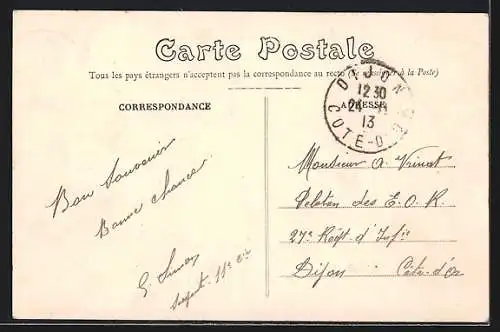 Carte Postale
Tous les pays étrangers n'acceptent pas la correspondance au recto (Se renseigner à la Poste)
CORRESPONDANCE
ADRESSE
DIJON
12 30
24 - 11
13
COTE-D'OR
Bon Souvenir
Bonne chance
Monsieur A. Vrinat
Peloton des E. O. R.
27e Regt. d'Infie
Dijon Côte-d'Or
Sergent - 11e Cie